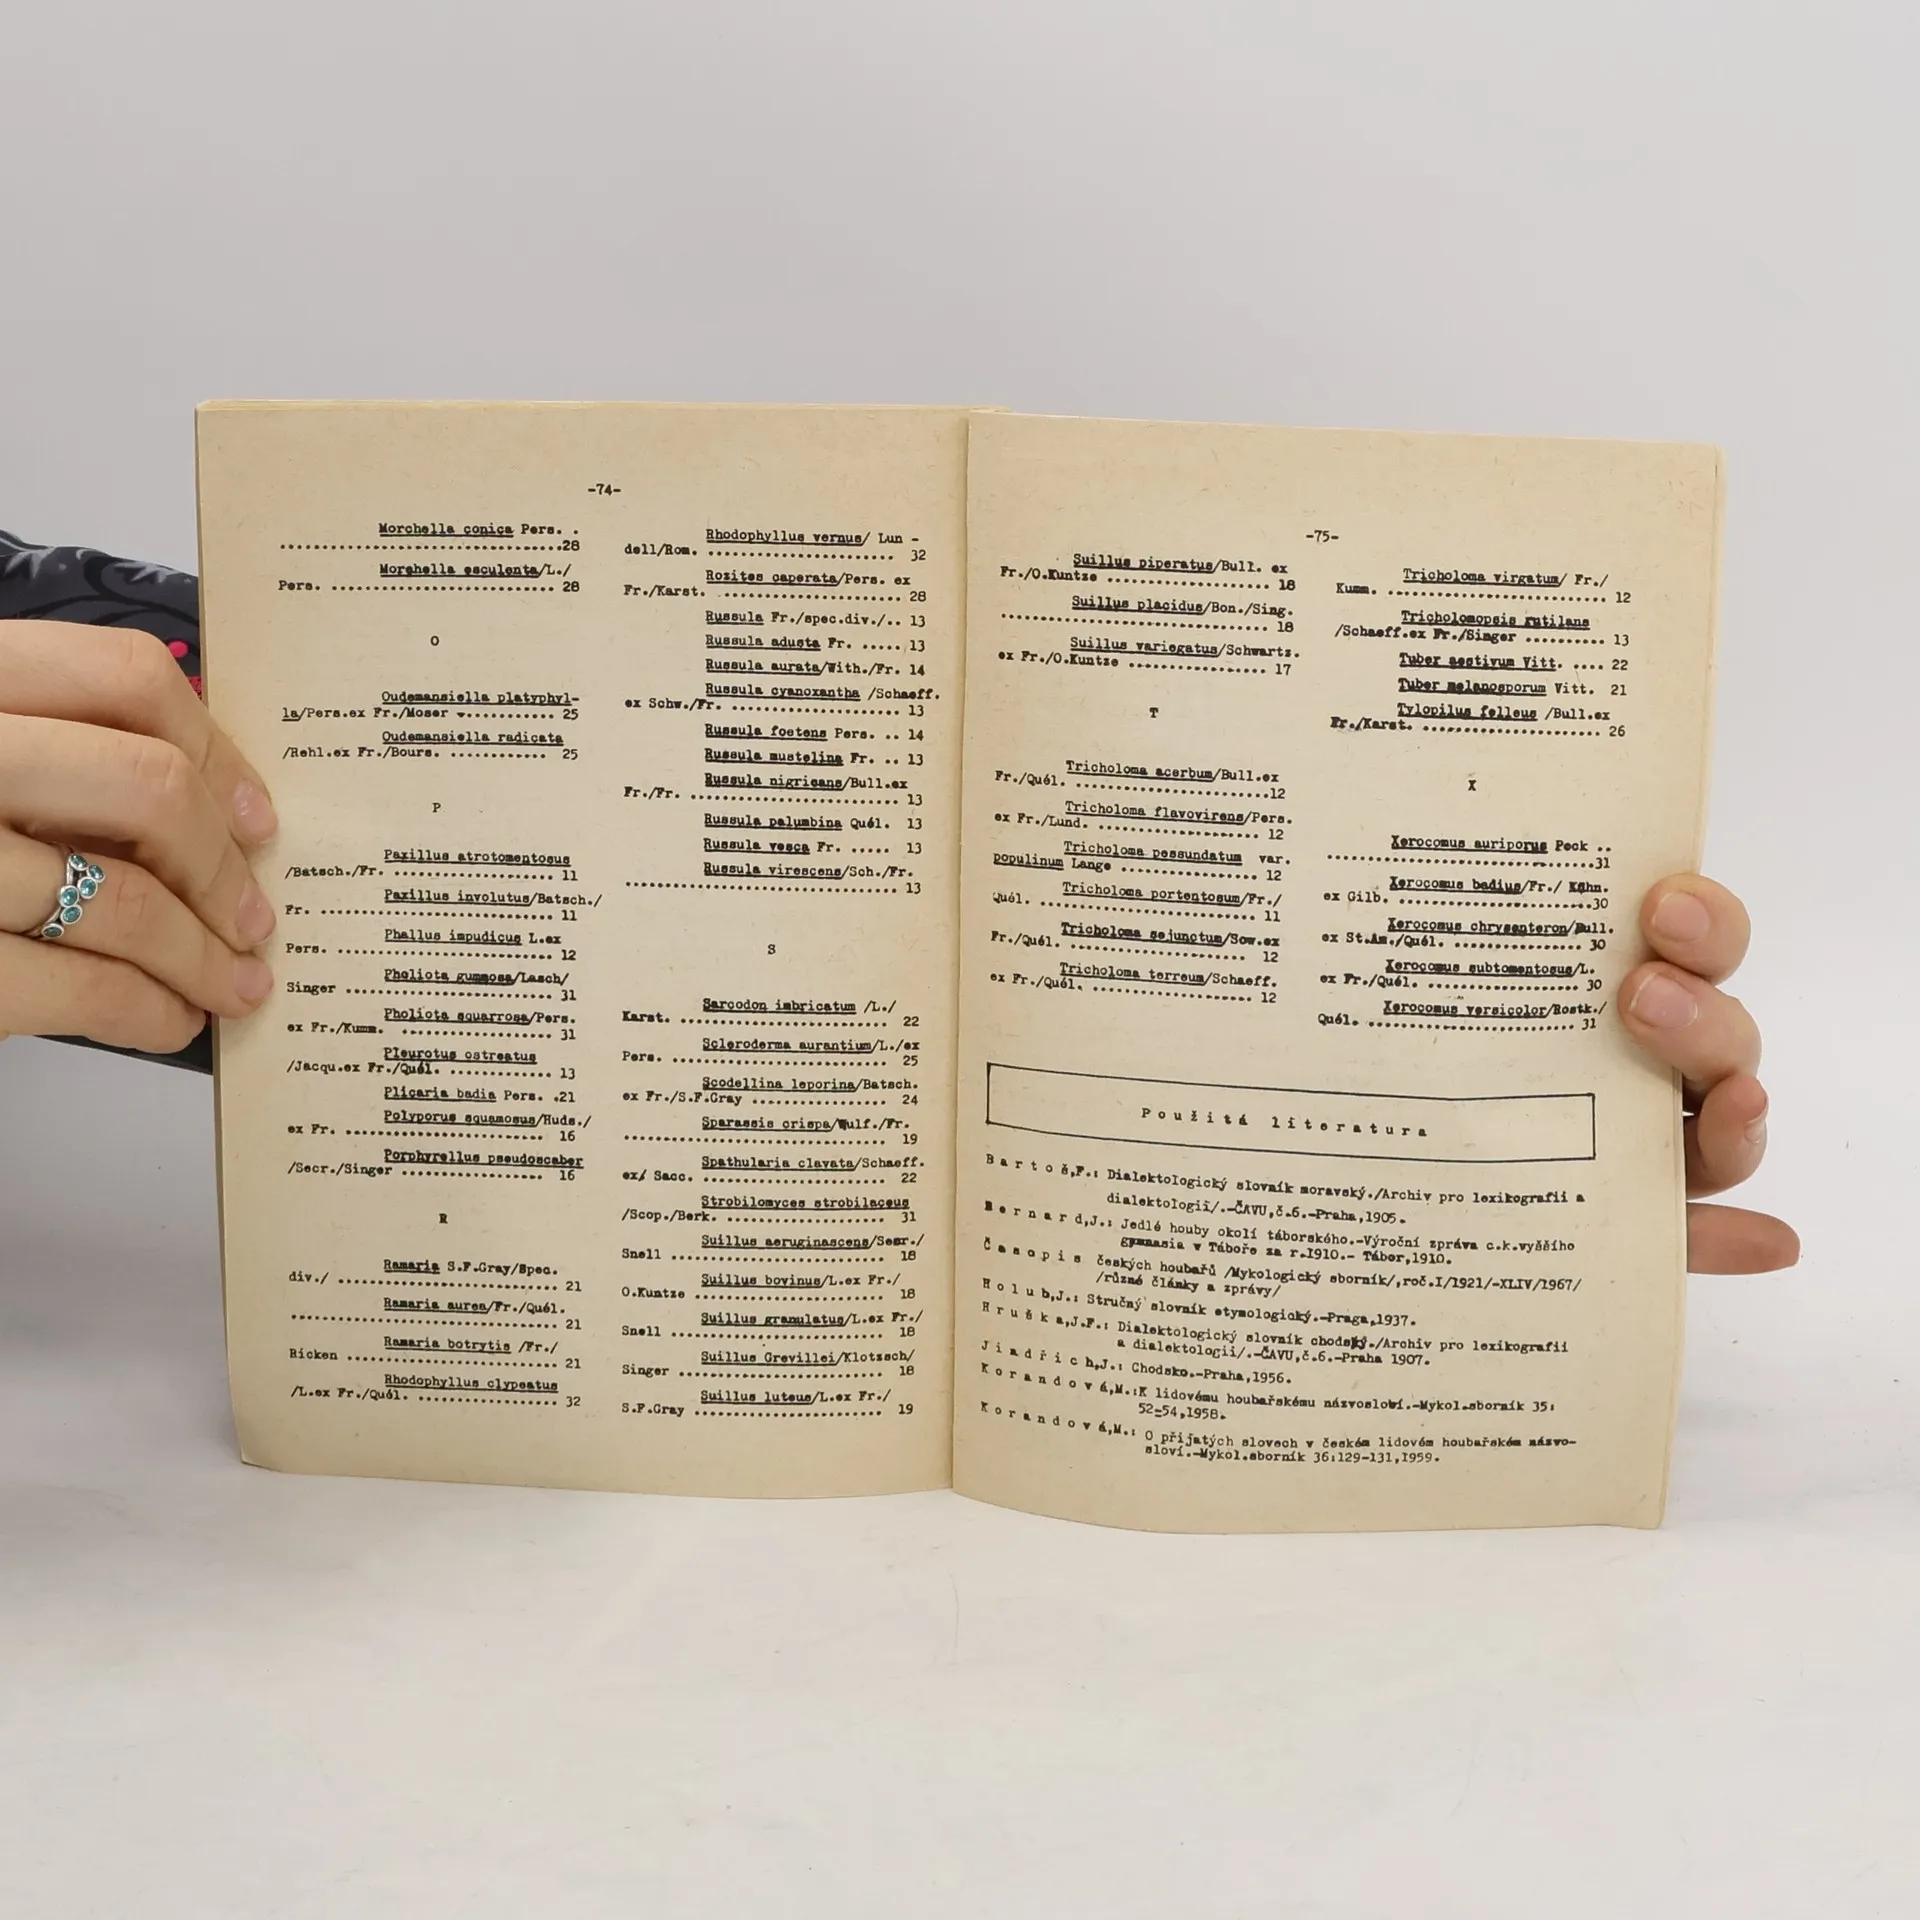 -74-
Morchella conica Pers. .
..............................28
Morchella esculenta/L./
Pers. ........................ 28
O
Oudemansiella platyphyl-
la/Pers.ex Fr./Moser ............ 25
Oudemansiella radicata
/Rehl.ex Fr./Bours. .......... 25
P
Paxillus atrotomentosus
/Batsch./Fr. ................. 11
Paxillus involutus/Batsch./
Fr. ......................... 11
Phallus impudicus L.ex
Pers. ....................... 12
Pholiota gummosa/Lasch/
Singer ...................... 31
Pholiota squarrosa/Pers.
ex Fr./Kumm. ................ 31
Pleurotus ostreatus
/Jacqu.ex Fr./Quél. ........... 13
Plicaria badia Pers. .21
Polyporus squamosus/Huds./
ex Fr. ...................... 16
Porphyrellus pseudoscaber
/Secr./Singer ............... 16
R
Ramaria S.F.Gray/Spec.
div./ ....................... 21
Ramaria aurea/Fr./Quél.
............................. 21
Ramaria botrytis /Fr./
Ricken ...................... 21
Rhodophyllus clypeatus
/L.ex Fr./Quél. .............. 32
Rhodophyllus vernus/ Lun -
dell/Rom. .................... 32
Rozites caperata/Pers. ex
Fr./Karst. ................... 28
Russula Fr./spec.div./.. 13
Russula adusta Fr. ..... 13
Russula aurata/With./Fr. 14
Russula cyanoxantha /Schaeff.
ex Schw./Fr. .................. 13
Russula foetens Pers. .. 14
Russula mustelina Fr. .. 13
Russula nigricans/Bull.ex
Fr./Fr. ...................... 13
Russula palumbina Quél. 13
Russula vesca Fr. ..... 13
Russula virescens/Sch./Fr.
............................. 13
S
Sarcodon imbricatum /L./
Karst. ...................... 22
Scleroderma aurantium/L./ex
Pers. ....................... 25
Scodellina leporina/Batsch.
ex Fr./S.F.Gray .............. 24
Sparassis crispa/Wulf./Fr.
............................. 19
Spathularia clavata/Schaeff.
ex/ Sacc. .................... 22
Strobilomyces strobilaceus
/Scop./Berk. ................. 31
Suillus aeruginascens/Secr./
Snell ....................... 18
Suillus bovinus/L.ex Fr./
O.Kuntze .................... 18
Suillus granulatus/L.ex Fr./
Snell ....................... 18
Suillus Grevillei/Klotzsch/
Singer ...................... 18
Suillus luteus/L.ex Fr./
S.F.Gray .................... 19
-75-
Suillus piperatus/Bull. ex
Fr./O.Kuntze ................. 18
Suillus placidus/Bon./Sing.
............................. 18
Suillus variegatus/Schwartz.
ex Fr./O.Kuntze .............. 17
T
Tricholoma acerbum/Bull.ex
Fr./Quél. ....................12
Tricholoma flavovirens/Pers.
ex Fr./Lund. ................. 12
Tricholoma pessundatum var.
populinum Lange .............. 12
Tricholoma portentosum/Fr./
Quél. ....................... 11
Tricholoma sejunctum/Sow.ex
Fr./Quél. .................... 12
Tricholoma terreum/Schaeff.
ex Fr./Quél. ................. 12
Tricholoma virgatum/ Fr./
Kumm. ....................... 12
Tricholomopsis rutilans
/Schaeff.ex Fr./Singer .......... 13
Tuber aestivum Vitt. .... 22
Tuber melanosporum Vitt. 21
Tylopilus felleus /Bull.ex
Fr./Karst. ................... 26
X
Xerocomus auriporus Peck ..
.............................31
Xerocomus badius/Fr./ Kühn.
ex Gilb. .....................30
Xerocomus chrysenteron/Bull.
ex St.Am./Quél. .............. 30
Xerocomus subtomentosus/L.
ex Fr./Quél. ................. 30
Xerocomus versicolor/Rostk./
Quél. ....................... 31
Použitá literatura
Bartoš,F.: Dialektologický slovník moravský./Archiv pro lexikografii a
dialektologii/.-ČAVU,č.6.-Praha,1905.
Bernard,J.: Jedlé houby okolí táborského.-Výroční zpráva c.k.vyššího
gymnasia v Táboře za r.1910.- Tábor,1910.
Časopis českých houbařů /Mykologický sborník/,roč.I/1921/-XLIV/1967/
/různé články a zprávy/
Holub,J.: Stručný slovník etymologický.-Praga,1937.
Hruška,J.F.: Dialektologický slovník chodský./Archiv pro lexikografii
a dialektologii/.-ČAVU,č.6.-Praha 1907.
Jindřich,J.: Chodsko.-Praha,1956.
Korandová,M.:K lidovému houbařskému názvosloví.-Mykol.sborník 35:
52-54,1958.
Korandová,M.: O přijatých slovech v českém lidovém houbařském názvo-
sloví.-Mykol.sborník 36:129-131,1959.